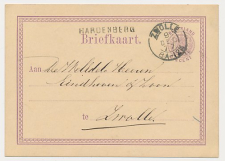 HARDENBERG
ZWOLLE
Briefkaart.
Aan den Weledele Heeren
Eindhoven & Zoon
te Zwolle